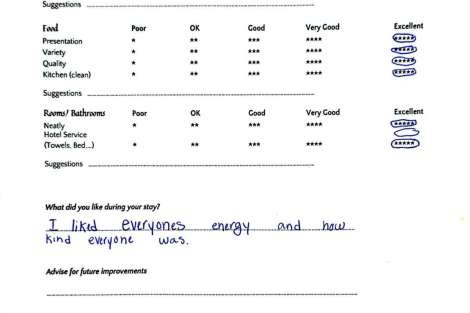 Suggestions
Food Poor OK Good Very Good Excellent
Presentation * ** *** **** *****
Variety * ** *** **** *****
Quality * ** *** **** *****
Kitchen (clean) * ** *** **** *****
Suggestions
Rooms/ Bathrooms Poor OK Good Very Good Excellent
Neatly * ** *** **** *****
Hotel Service
(Towels, Bed...) * ** *** **** *****
Suggestions
What did you like during your stay?
I liked everyones energy and how
kind everyone was.
Advise for future improvements